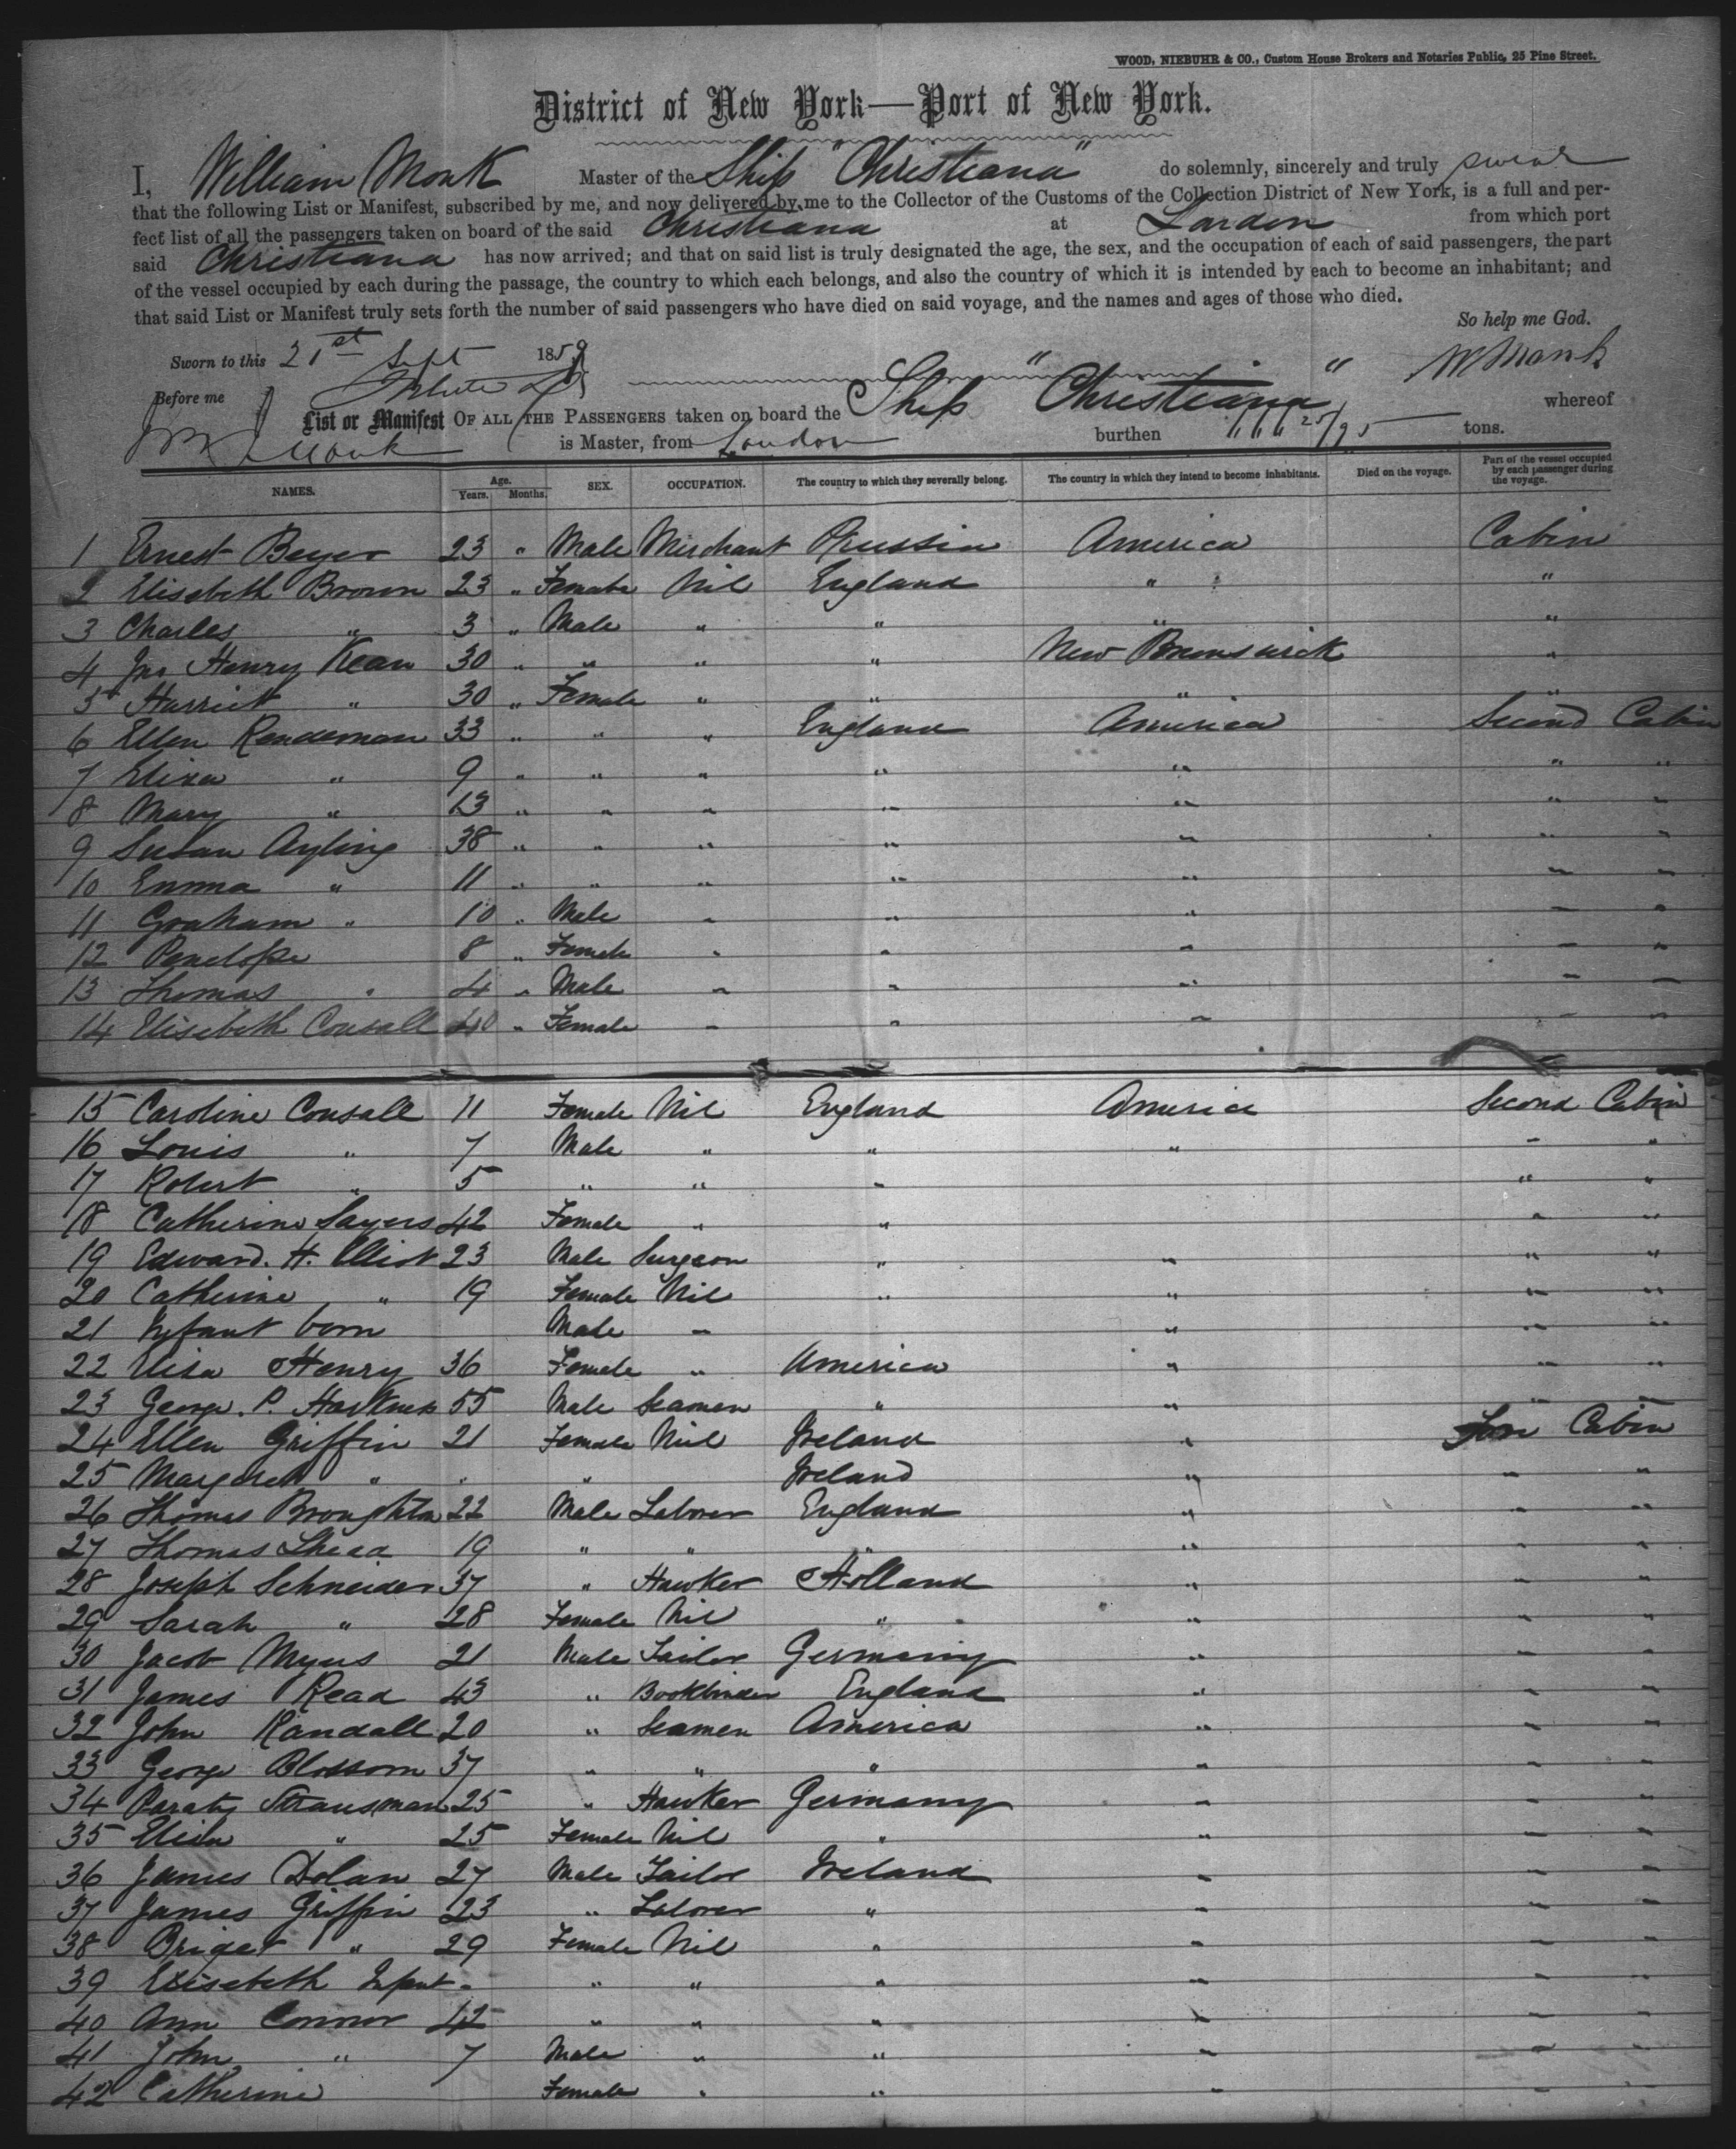 WOOD, NIEBUHR & CO., Custom House Brokers and Notaries Public, 25 Pine Street.
District of New York—Port of New York.
I, William Monk Master of the Ship "Christiana" do solemnly, sincerely and truly swear
that the following List or Manifest, subscribed by me, and now delivered by me to the Collector of the Customs of the Collection District of New York, is a full and per-
fect list of all the passengers taken on board of the said Christiana at London from which port
said Christiana has now arrived; and that on said list is truly designated the age, the sex, and the occupation of each of said passengers, the part
of the vessel occupied by each during the passage, the country to which each belongs, and also the country of which it is intended by each to become an inhabitant; and
that said List or Manifest truly sets forth the number of said passengers who have died on said voyage, and the names and ages of those who died.
So help me God.
Sworn to this 21st Sept 1859 W Monk
Before me
List or Manifest OF ALL THE PASSENGERS taken on board the Ship "Christiana" whereof
W Monk is Master, from London burthen tons.
NAMES. Age. Years. Months. SEX. OCCUPATION. The country to which they severally belong. The country in which they intend to become inhabitants. Died on the voyage. Part of the vessel occupied by each passenger during the voyage.
1 Ernest Beyer 23 " Male Merchant Prussia America Cabin
2 Elisebeth Brown 23 " Female Nil England " "
3 Charles " 3 " Male " " " "
4 Jno Henry Kean 30 " " " " New Brunswick "
5 Harriet " 30 " Female " " " "
6 Ellen Rendeman 33 " " " England America Second Cabin
7 Eliza " 9 " " " " " " "
8 Mary " 13 " " " " " " "
9 Susan Ayling 38 " " " " " " "
10 Emma " 11 " " " " " " "
11 Graham " 10 " Male " " " " "
12 Penelope 8 " Female " " " " "
13 Thomas " 4 " Male " " " " "
14 Elisebeth Consall 40 " Female " " " " "
15 Caroline Consall 11 Female Nil England America Second Cabin
16 Louis " 7 Male " " " " "
17 Robert " 5 " " " " "
18 Catherine Sayers 42 Female " " " "
19 Edward. H. Elliot 23 Male Surgeon " " " "
20 Catherine " 19 Female Nil " " " "
21 Infant born Male " " " "
22 Elisa Henry 36 Female " America " " "
23 George. P. Harkness 55 Male Seamen " " " "
24 Ellen Griffin 21 Female Nil Ireland " Fore Cabin
25 Margaret " " " Ireland " " "
26 Thomas Broughton 22 Male Laborer England " " "
27 Thomas Shead 19 " " " " " "
28 Joseph Schneider 37 " Hawker Holland " " "
29 Sarah " 28 Female Nil " " " "
30 Jacob Myers 21 Male Tailor Germany " " "
31 James Read 43 " Bookbinder England " " "
32 John Randall 20 " Seamen America " " "
33 George Blossom 37 " " " " " "
34 Strausman 25 " Hawker Germany " " "
35 Elisa " 25 Female Nil " " " "
36 James Dolan 27 Male Tailor Ireland " " "
37 James Griffin 23 " Laborer " " " "
38 Briget " 29 Female Nil " " " "
39 Elisebeth Infant " " " " " " "
40 Ann Connor 42 " " " " " "
41 John " 7 Male " " " " "
42 Catherine Female " " " " "